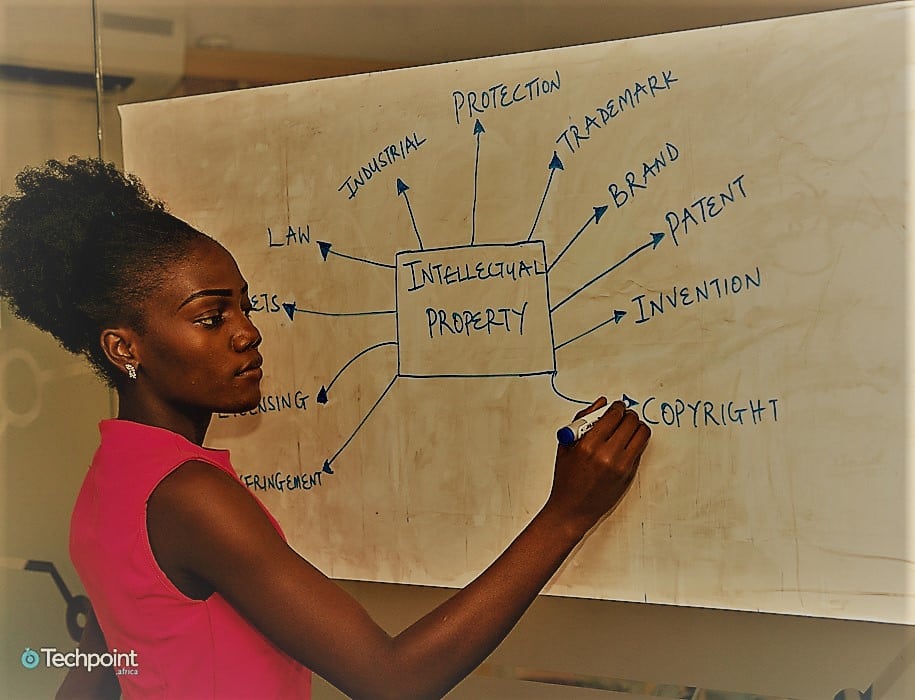 PROTECTION
TRADEMARK
INDUSTRIAL
BRAND
PATENT
LAW
INTELLECTUAL
PROPERTY
INVENTION
ETS
ENSING
COPYRIGHT
FRINGEMENT
Techpoint
.africa